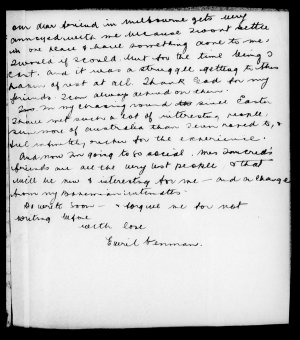 our dear friend in Melbourne gets very
annoyed with me because I wont settle
in one place & have something done to me.
I would if I could. but for the time being I
cant. And it was a struggle getting to this
haven of rest at all. Thank God for my
friends. I can always depend on them.
In my chasing round since Easter
I have met such a lot of interesting people,
seen more of Australia than I ever hoped to, &
feel infinitely richer for the experience.
And now I'm going to be social. Mrs
friends are all the very best people & that
will be new & interesting for me — and a change
from my Bohemian intimates.
Do write soon — & forgive me for not
writing before
With love